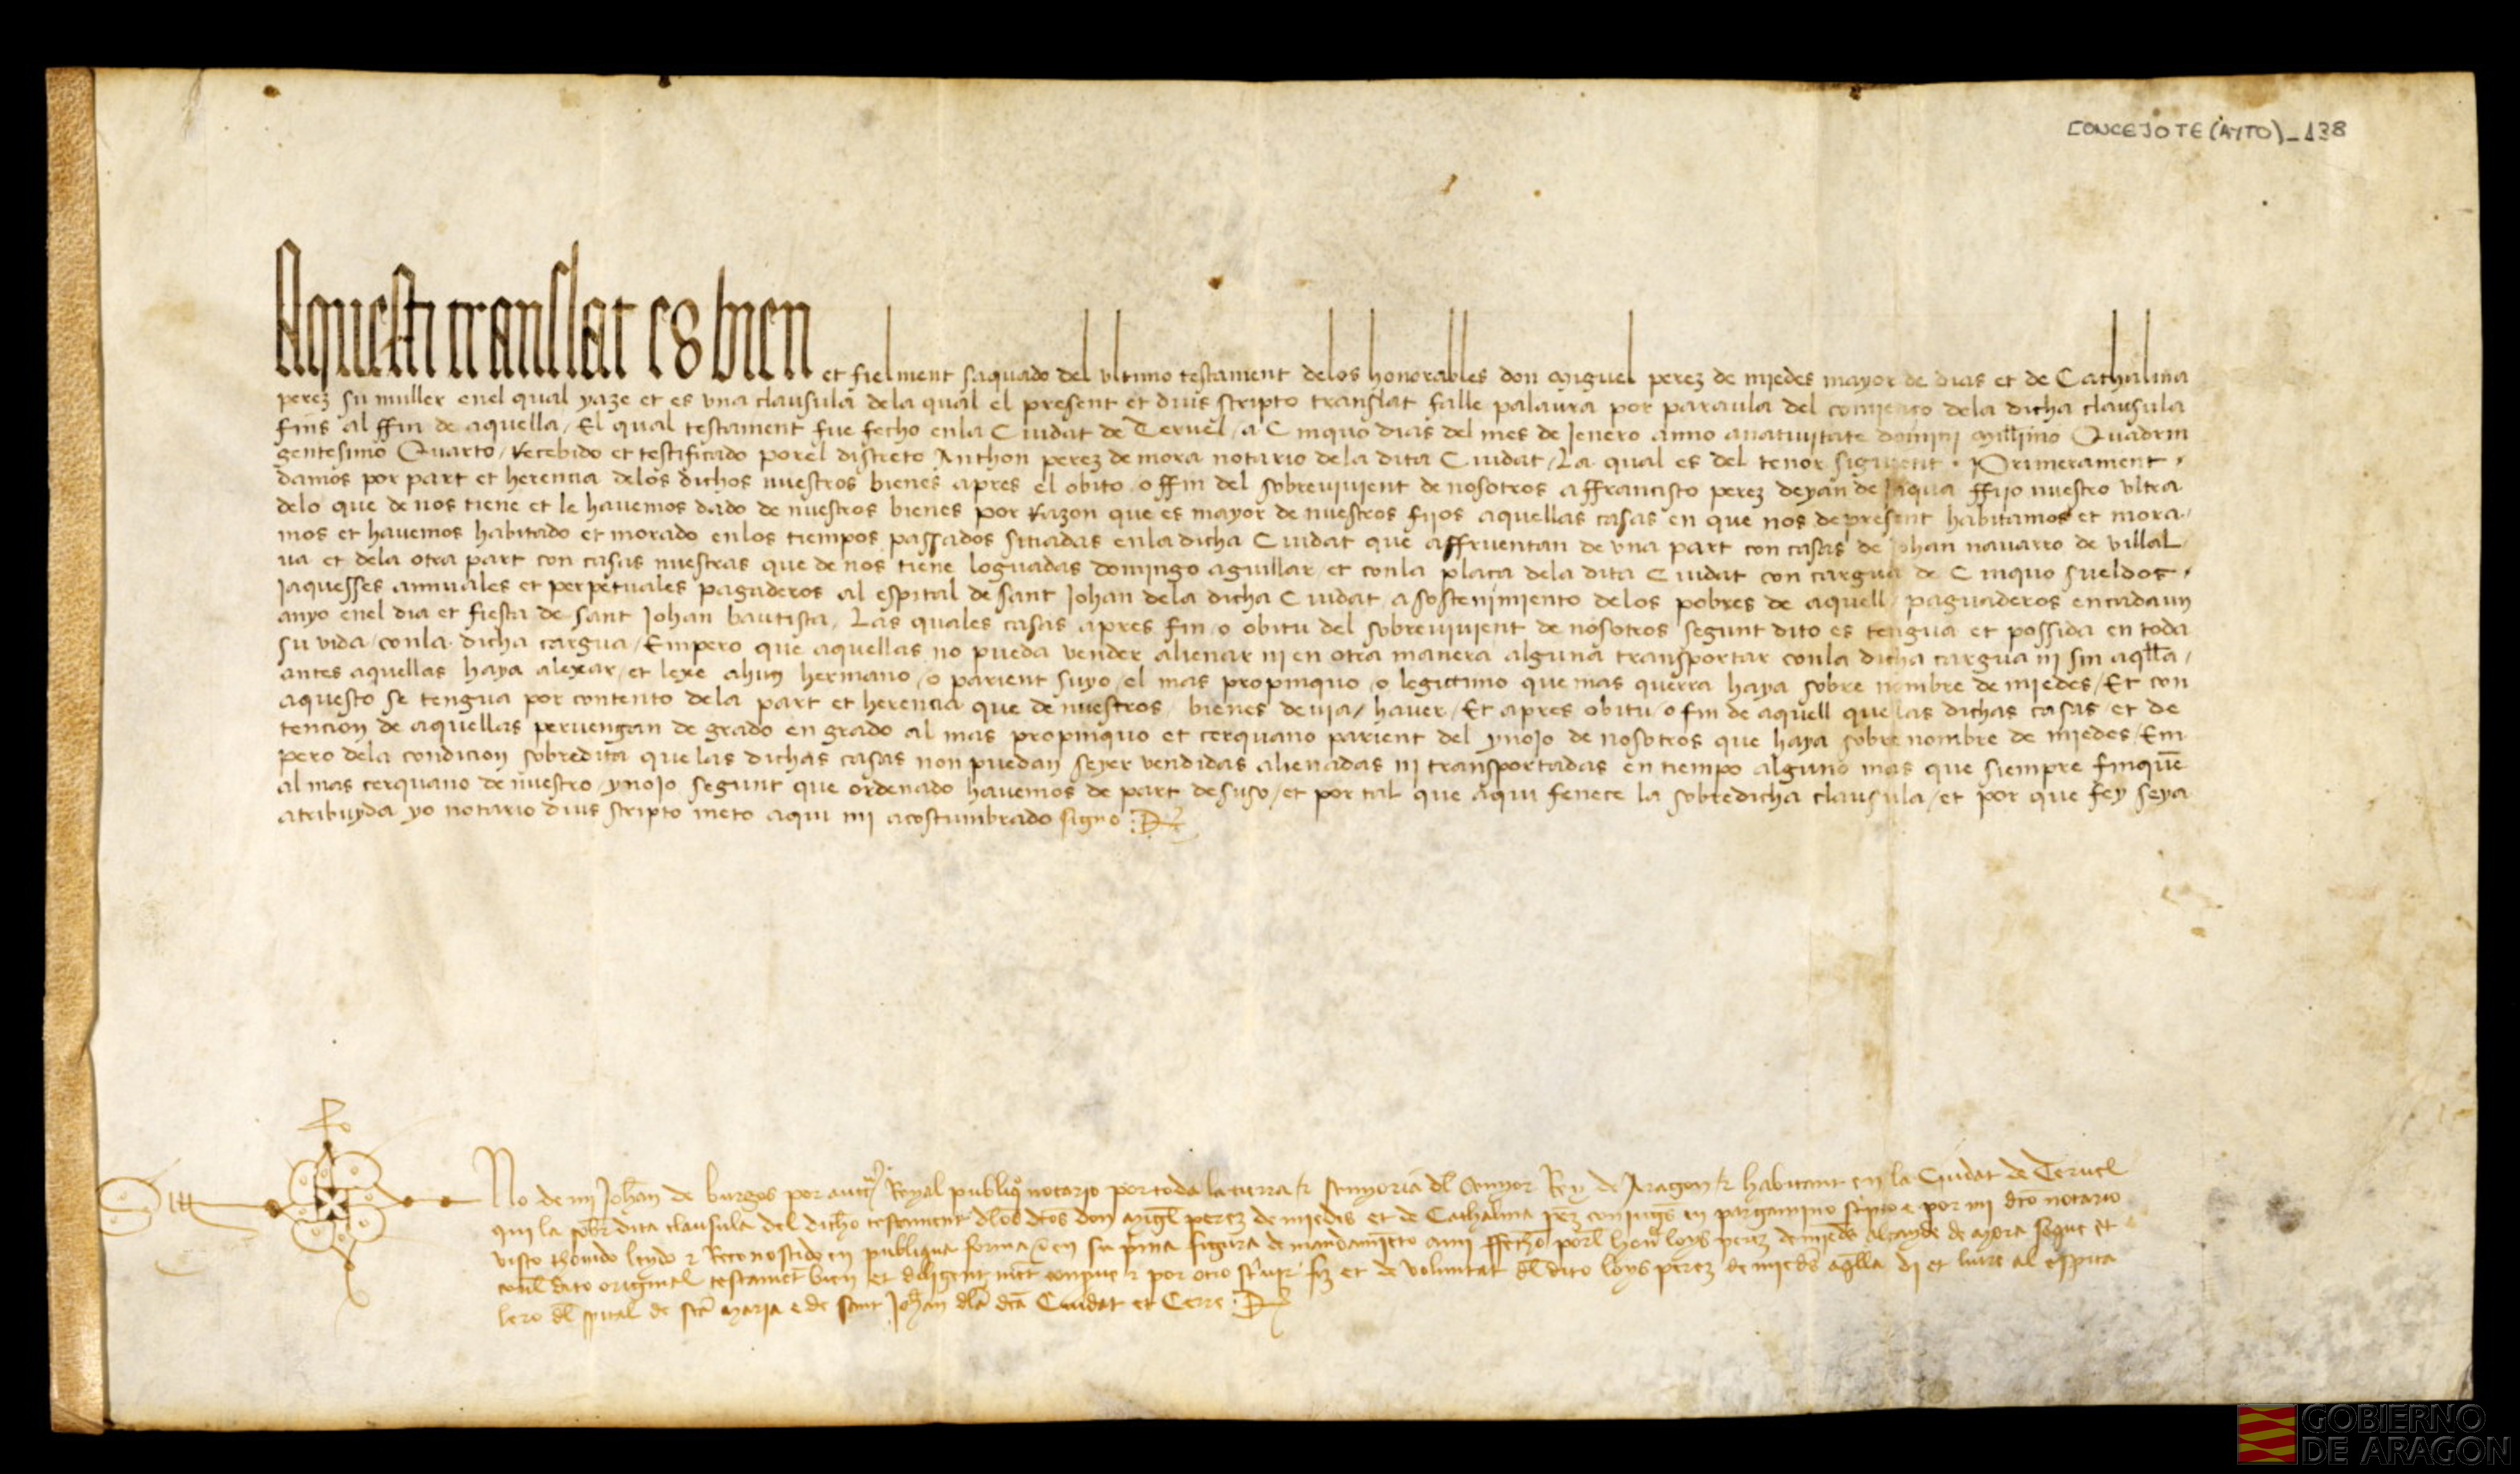 CONCEJOTE(AYTO)_138
Aquesti translat es bien et fielment saquado del ultimo testament delos honorables don Miguel perez de miedes mayor de dias et de Cathalina
perez su muller enel qual yaze et es una clausula dela qual el present et dius scripto translat salle palaura por paraula del comienço dela dicha clausula
fins al ffin de aquella / El qual testament fue fecho enla Ciudat de Teruel / a Cinquo dias del mes de Jenero anno anativitate domini Millimo Quadrin
gentesimo Quarto / Recebido et testificado porel discreto Anthon perez de mora notario dela dita Ciudat / La qual es del tenor siguient · Primerament ·
damos por part et herencia delos dichos nuestros bienes apres el obito o ffin del sobrevivient de nosotros a ffrancisco perez deyan de Jaqua ffijo nuestro ultra
delo que de nos tiene et le havemos dado de nuestros bienes por Razon que es mayor de nuestros fijos aquellas casas en que nos de present habitamos et mora
mos et havemos habitado et morado enlos tiempos passados sitiadas enla dicha Ciudat que affruentan de una part con casas de Johan navarro de villal
va et dela otra part con casas nuestras que de nos tiene loguadas domingo aguillar et conla plaça dela dita Ciudat con cargua de Cinquo sueldos ·
Jaquesses annuales et perpetuales pagaderos al espital de sant Johan dela dicha Ciudat a sostenimiento delos pobres de aquell / paguaderos encadaun
anyo enel dia et fiesta de sant Johan bautista / Las quales casas apres fin / o obitu del sobrevivient de nosotros segunt dito es tengua et possida en toda
su vida / conla dicha cargua / Empero que aquellas no pueda vender alienar ni en otra manera alguna transportar conla dicha cargua ni sin aqlla /
antes aquellas haya alexar / et lexe ahun hermano / o parient suyo / el mas propinquo / o legittimo que mas querra haya sobre nombre de miedes / Et con
aquesto se tengua por contento dela part et herencia que de nuestros bienes devia / haver / Et apres obitu / o fin de aquell que las dichas casas / et de
tencion de aquellas pervengan de grado en grado al mas propinquo et cerquano parient del ynojo de nosotros que haya sobre nombre de miedes / Em
pero dela condicion sobredita que las dichas casas non puedan seyer vendidas alienadas ni transportadas en tiempo alguno mas que siempre finque
al mas cerquano de nuestro ynojo segunt que ordenado havemos de part desuso / et por tal que aqui fenece la sobredicha clausula / et por que fey seya
atribuyda yo notario dius scripto meto aqui mi acostumbrado signo
No de mi Johan de burgos por auct Royal publiq notario por toda la tierra et senyoria dl senyor Rey de Aragon et habitant en la Ciudat de Teruel
qui la sobrdita clausula del dicho testament dlos dtos don Migl perez de miedes et de Cathalina prez coniuges en pargamino scripto e por mi dto notario
visto thenido leydo et Reconoscido en publiqua forma et en su prima figura de mandamieto ami ffecho porl honr loys perez de mieds alcayde de mora saque et
conl dito original testamet bien et diligentmet compue et por otro scrivir fiz et de voluntat dl dito loys perez de mieds aqlla di et livre al espita
lero dl spital de sca Maria e de sant Johan dla dca Ciudat et Cerre
GOBIERNO
DE ARAGON